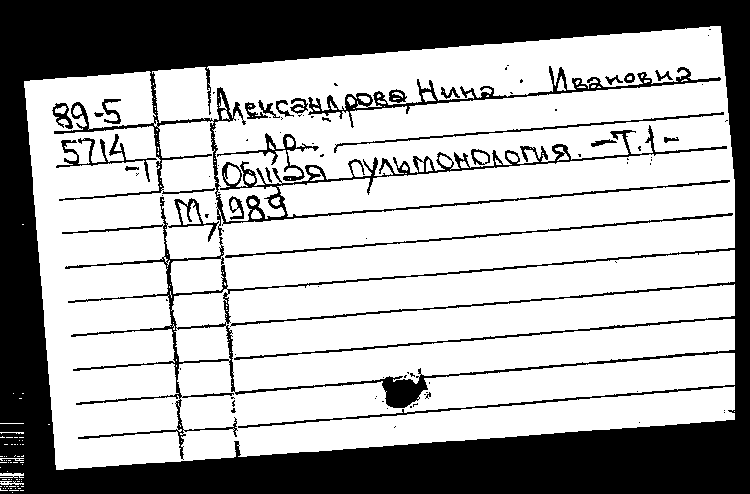 89-5 Александрова, Нина Ивановна
5714 др.
-1 Общая пульмонология. -Т.1-
М., 1989.